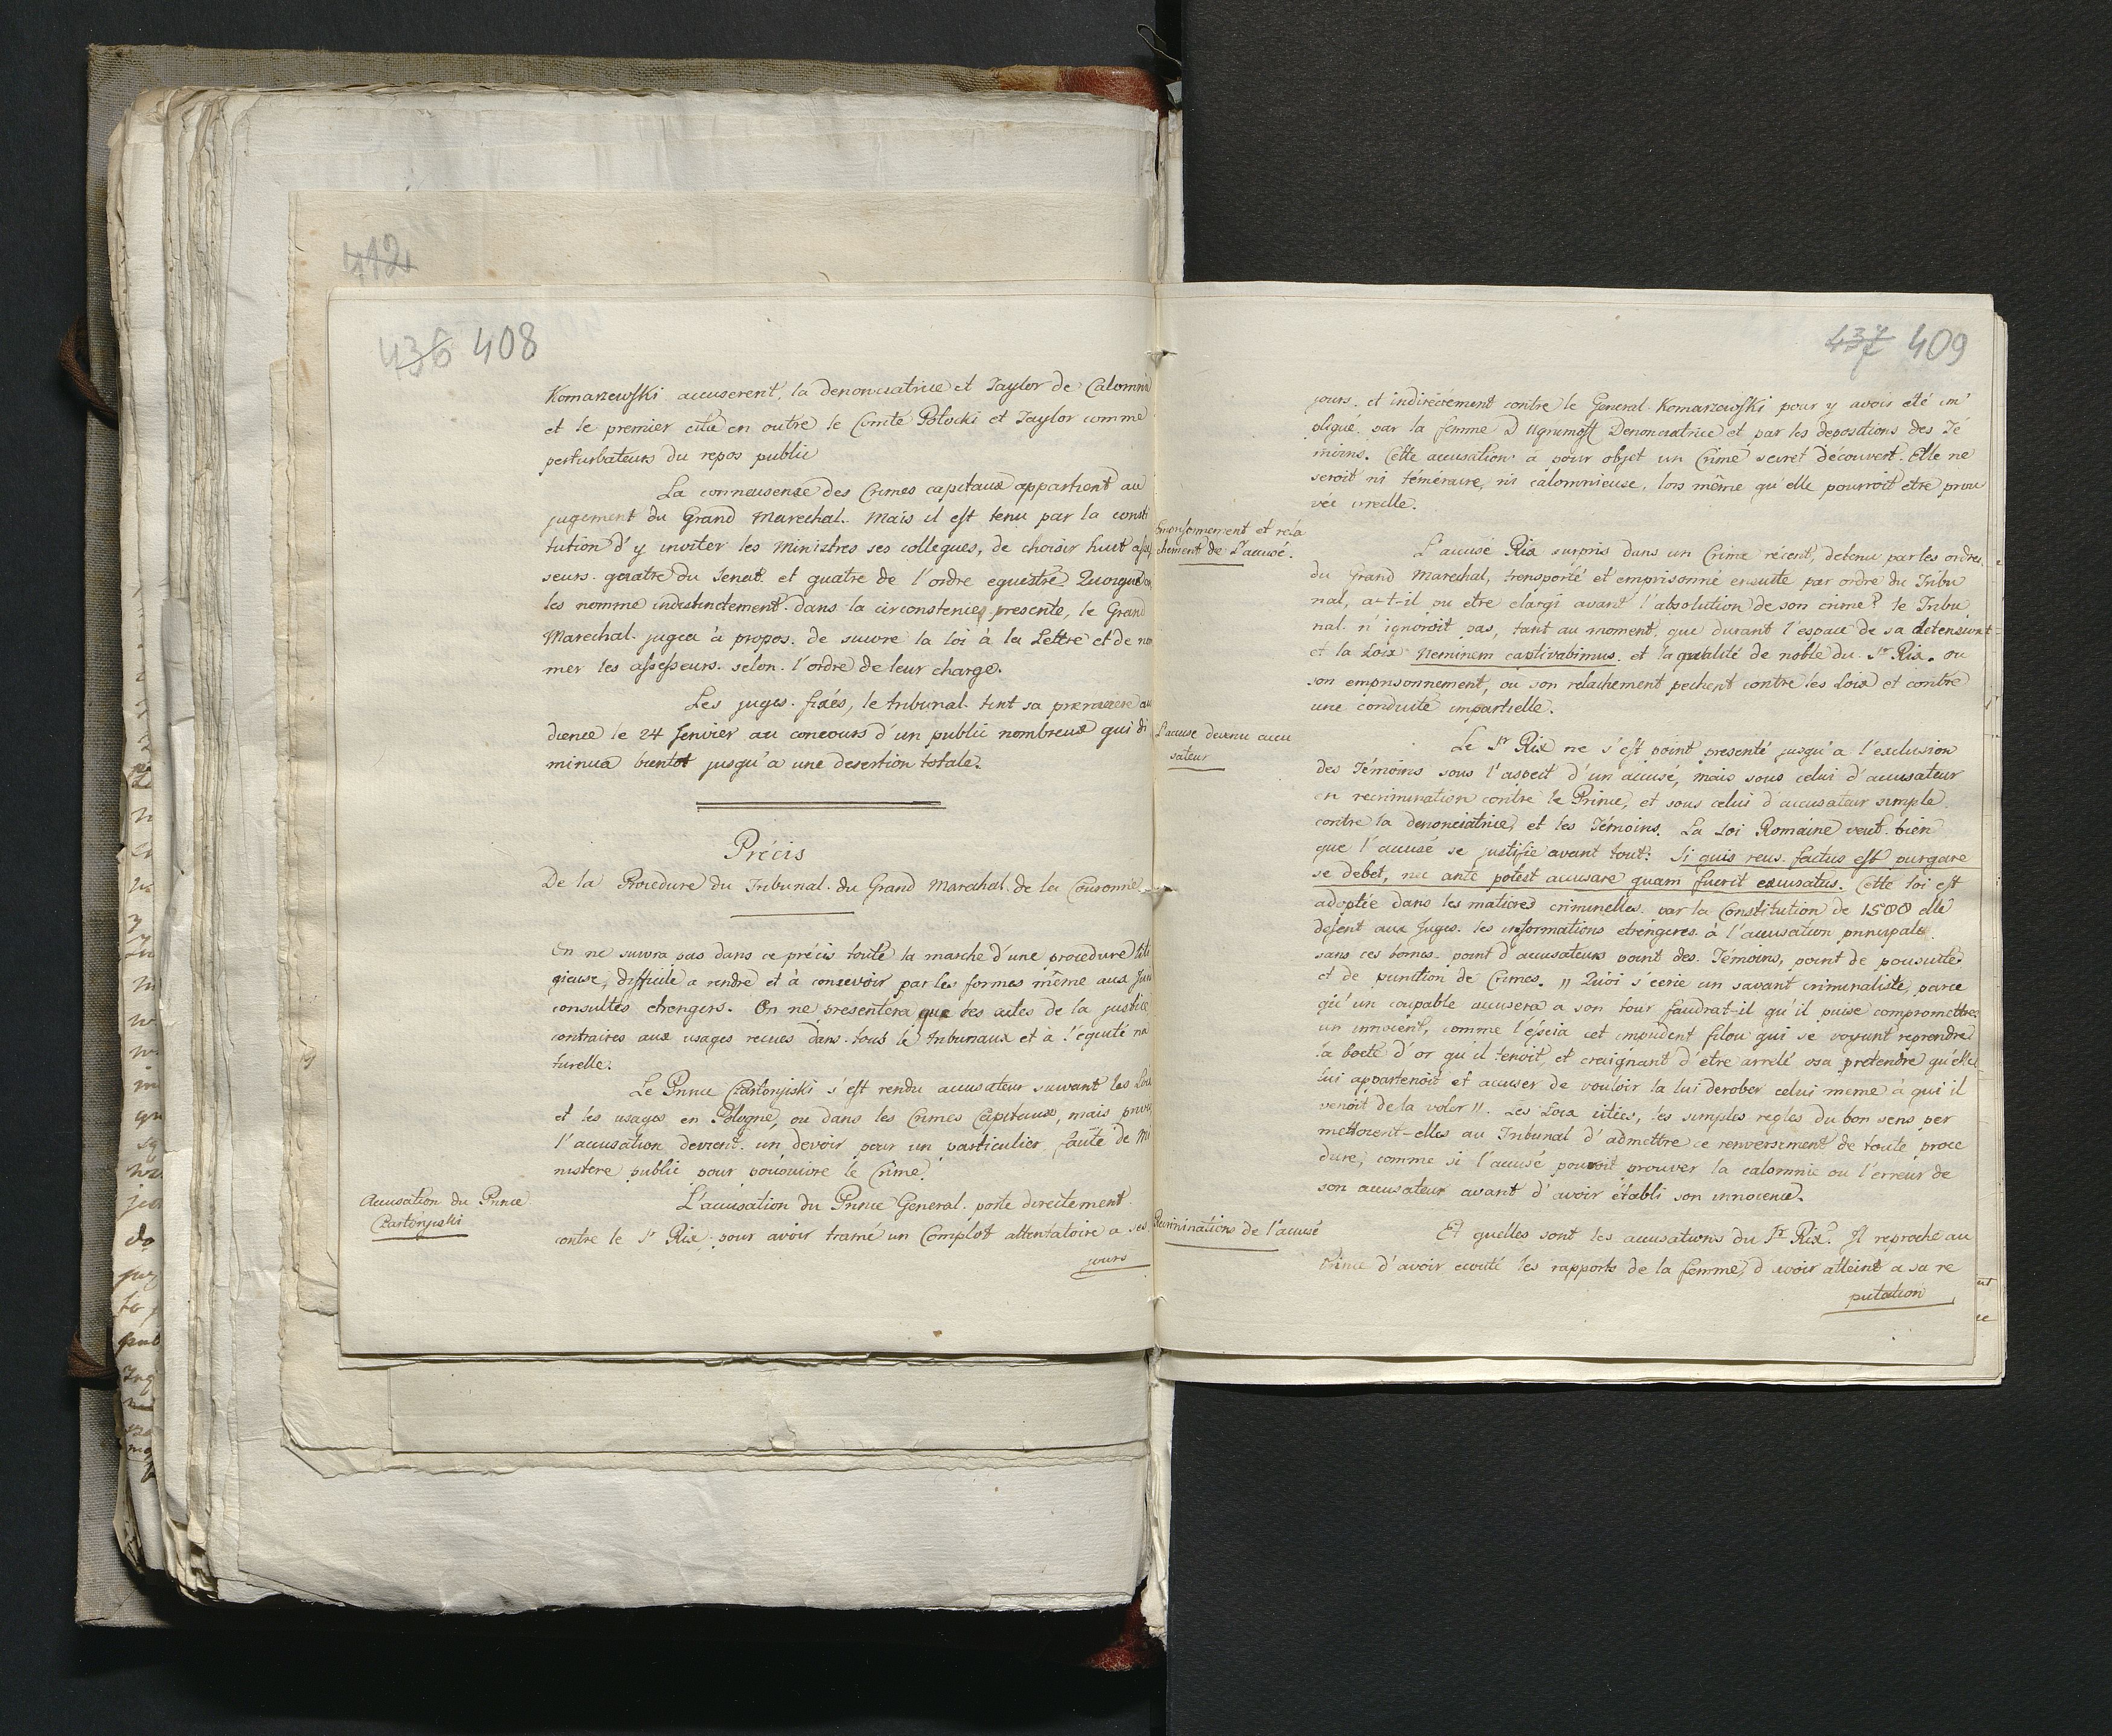 412
436 408
Komarzewski accuserent, la denonciatrice et Taylor de Calomnie
et le premier cita en outre le Comte Potocki et Taylor comme
perturbateurs du repos public
La conneusence des Crimes capitaux appartient au
jugement du Grand Marechal. Mais il est tenu par la consti
tution d'y inviter les Ministres ses collegues, de choisir huit asses
seurs. quatre du Senat. et quatre de l'ordre equestre. Quoique
les nomme indistinctement. dans la circonstence presente, le Grand
Marechal. jugea à propos. de suivre la loi à la Lettre et de nom
mer les assesseurs. selon. l'ordre de leur charge.
Les juges. fixés, le tribunal. tint sa premiere au
dience le 24 Jenvier au concours d'un public nombreux qui di
minua bientot jusqu'a une desertion totale.
Précis
De la Procedure du Tribunal. du Grand Marechal. de la Couronne
On ne suivra pas dans ce précis toute la marche d'une procedure liti
gieuse, difficile a rendre et à concevoir par les formes même aux Juris
consultes etrengers. On ne presentera que des actes de la justice
contraires aux usages recues dans. tous le tribunaux et à l'equité na
turelle.
Le Prince Czartoryiski s'est rendu accusateur suivant les Loix
et les usages en Pologne, ou dans les Crimes Capitaux, mais
l'accusation devient. un devoir pour un particulier faute de Mi
nistere public pour poursuivre le Crime.
Accusation du Prince
Czartoryiski
L'accusation du Prince General. porte directement
contre le Sr Rix pour avoir tramé un Complot attentatoire a ses
jours
437 409
jours. et indirectement contre le General. Komarzowski pour y avoir été im
pliqué. par la femme D'Ugrumoff Denonciatrice et par les depositions des Té
moins. Cette accusation a pour objet un Crime secret découvert. Elle ne
seroit ni téméraire, ni calomnieuse, lors même qu'elle pourroit etre prou
vée irreelle.
Emprisonnement et rela
chement de L'accusé.
L'accusé Rix surpris dans un Crime récent, detenu par les ordres
du Grand Marechal, transporté et emprisonné ensuite par ordre du Tribu
nal, a-t-il pu etre elargi avant l'absolution de son crime? le Tribu
nal. n'ignoroit pas, tant au moment, que durant l'espace de sa detension
et la Loix Neminem captivabimus. et la qualité de noble du Sr Rix. ou
son emprisonnement, ou son relachement pechent contre les Loix et contre
une conduite impartielle.
L'accuse devenu accu
sateur
Le Sr Rix ne s'est point presenté jusqu'a l'exclusion
des Témoins sous l'aspect d'un accusé, mais sous celui d'accusateur
en recrimination contre le Prince, et sous celui d'accusateur simple
contre la denonciatrice, et les Témoins. La Loi Romaine veut. bien
que l'accusé se justifie avant tout: Si quis reus. factus est purgare
se debet, nec ante potest accusare quam fuerit excusatus. Cette loi est
adoptée dans les matieres criminelles. par la Constitution de 1588 elle
defent aux Juges. les informations etrengeres. à l'accusation principale.
sans ces bornes. point d'accusateurs point des. Témoins, point de pousuite
et de punition de Crimes. „ Quoi s'ecrie un savant criminaliste, parce
qu'un coupable accusera a son tour faudrat-il qu'il puise compromettre
un innocent, comme l'éseia cet impudent filou qui se voyant reprendre
la boete d'or qu'il tenoit, et craignant d'etre arreté osa pretendre qu'elle
lui appartenoit et accuser de vouloir la lui derober celui meme à qui il
venoit de la voler „. Les Loix citées, les simples regles du bon sens per
mettoient-elles au Tribunal d'admettre ce renversement de toute proce
dure, comme si l'accusé pouvoit prouver la calomnie ou l'erreur de
son accusateur avant d'avoir établi son innocence.
Recriminations de l'accusé
Et quelles sont les accusations du Sr Rix? Il reproche au
Prince d'avoir ecouté les rapports de la femme, d'avoir atteint a sa re
putation